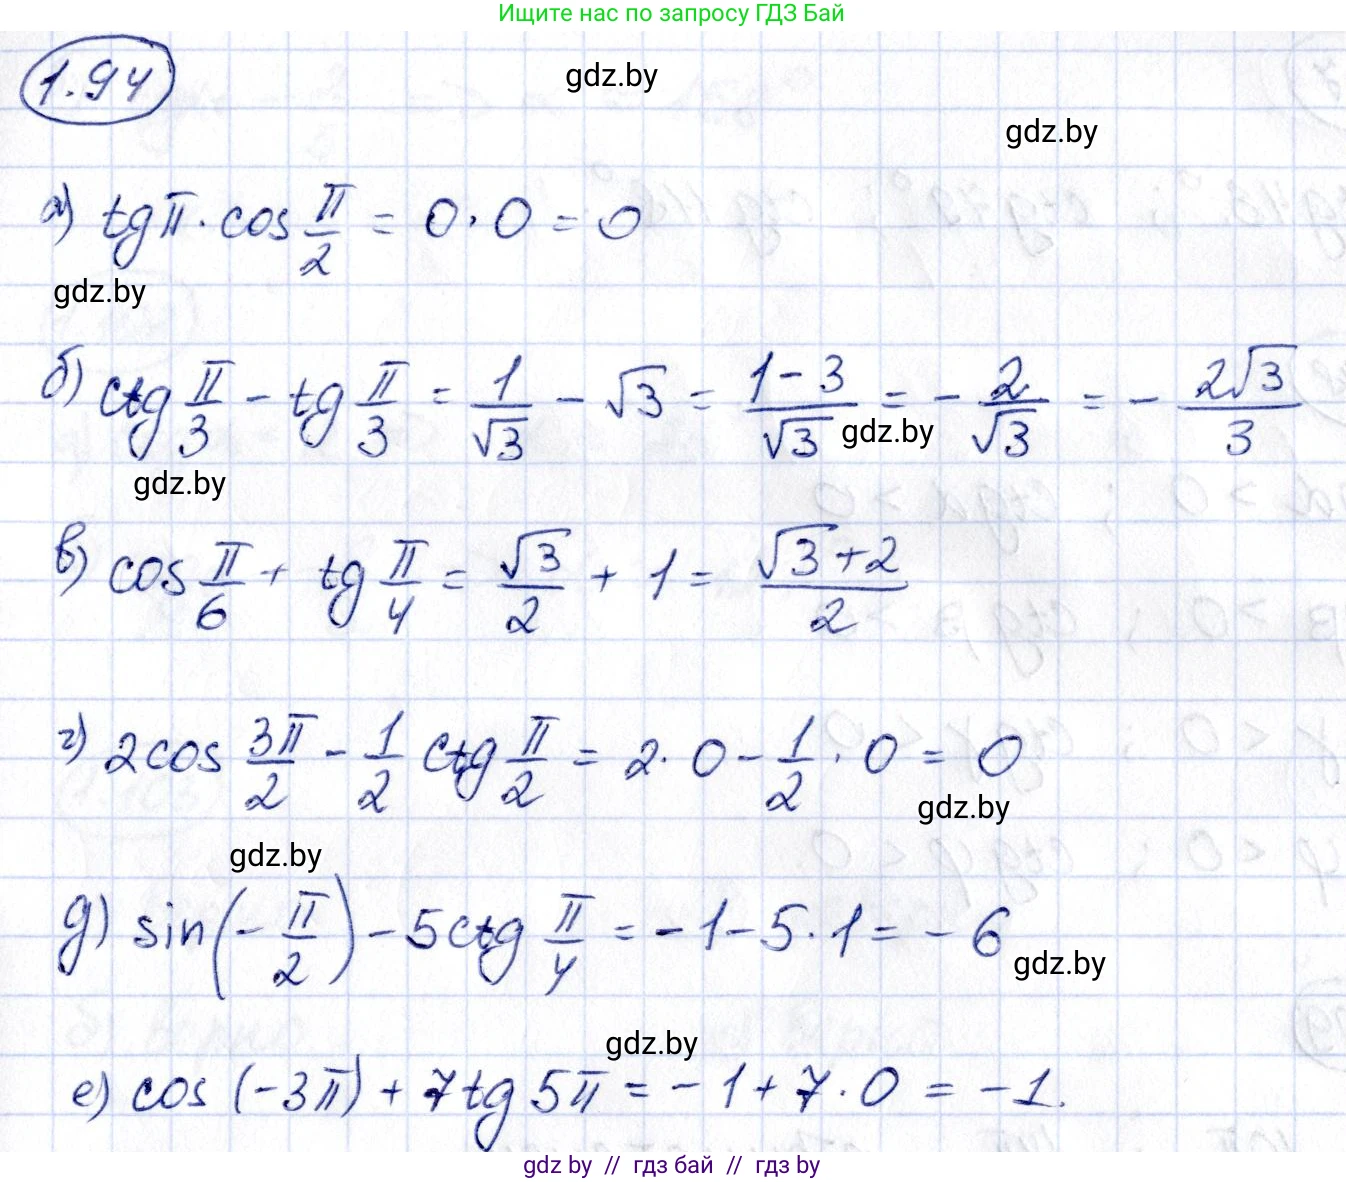 Ищите нас по запросу ГДЗ Бай
1.94
gdz.by
gdz.by
а) tgπ · cos π/2 = 0 · 0 = 0
gdz.by
б) ctg π/3 - tg π/3 = 1/√3 - √3 = (1-3)/√3 = - 2/√3 = - 2√3/3
gdz.by
gdz.by
в) cos π/6 + tg π/4 = √3/2 + 1 = (√3+2)/2
г) 2cos 3π/2 - 1/2 ctg π/2 = 2 · 0 - 1/2 · 0 = 0
gdz.by
gdz.by
д) sin(- π/2) - 5ctg π/4 = -1-5·1 = -6
gdz.by
gdz.by
е) cos (-3π) + 7tg 5π = -1+7·0 = -1.
gdz by // гдз бай // гдз by